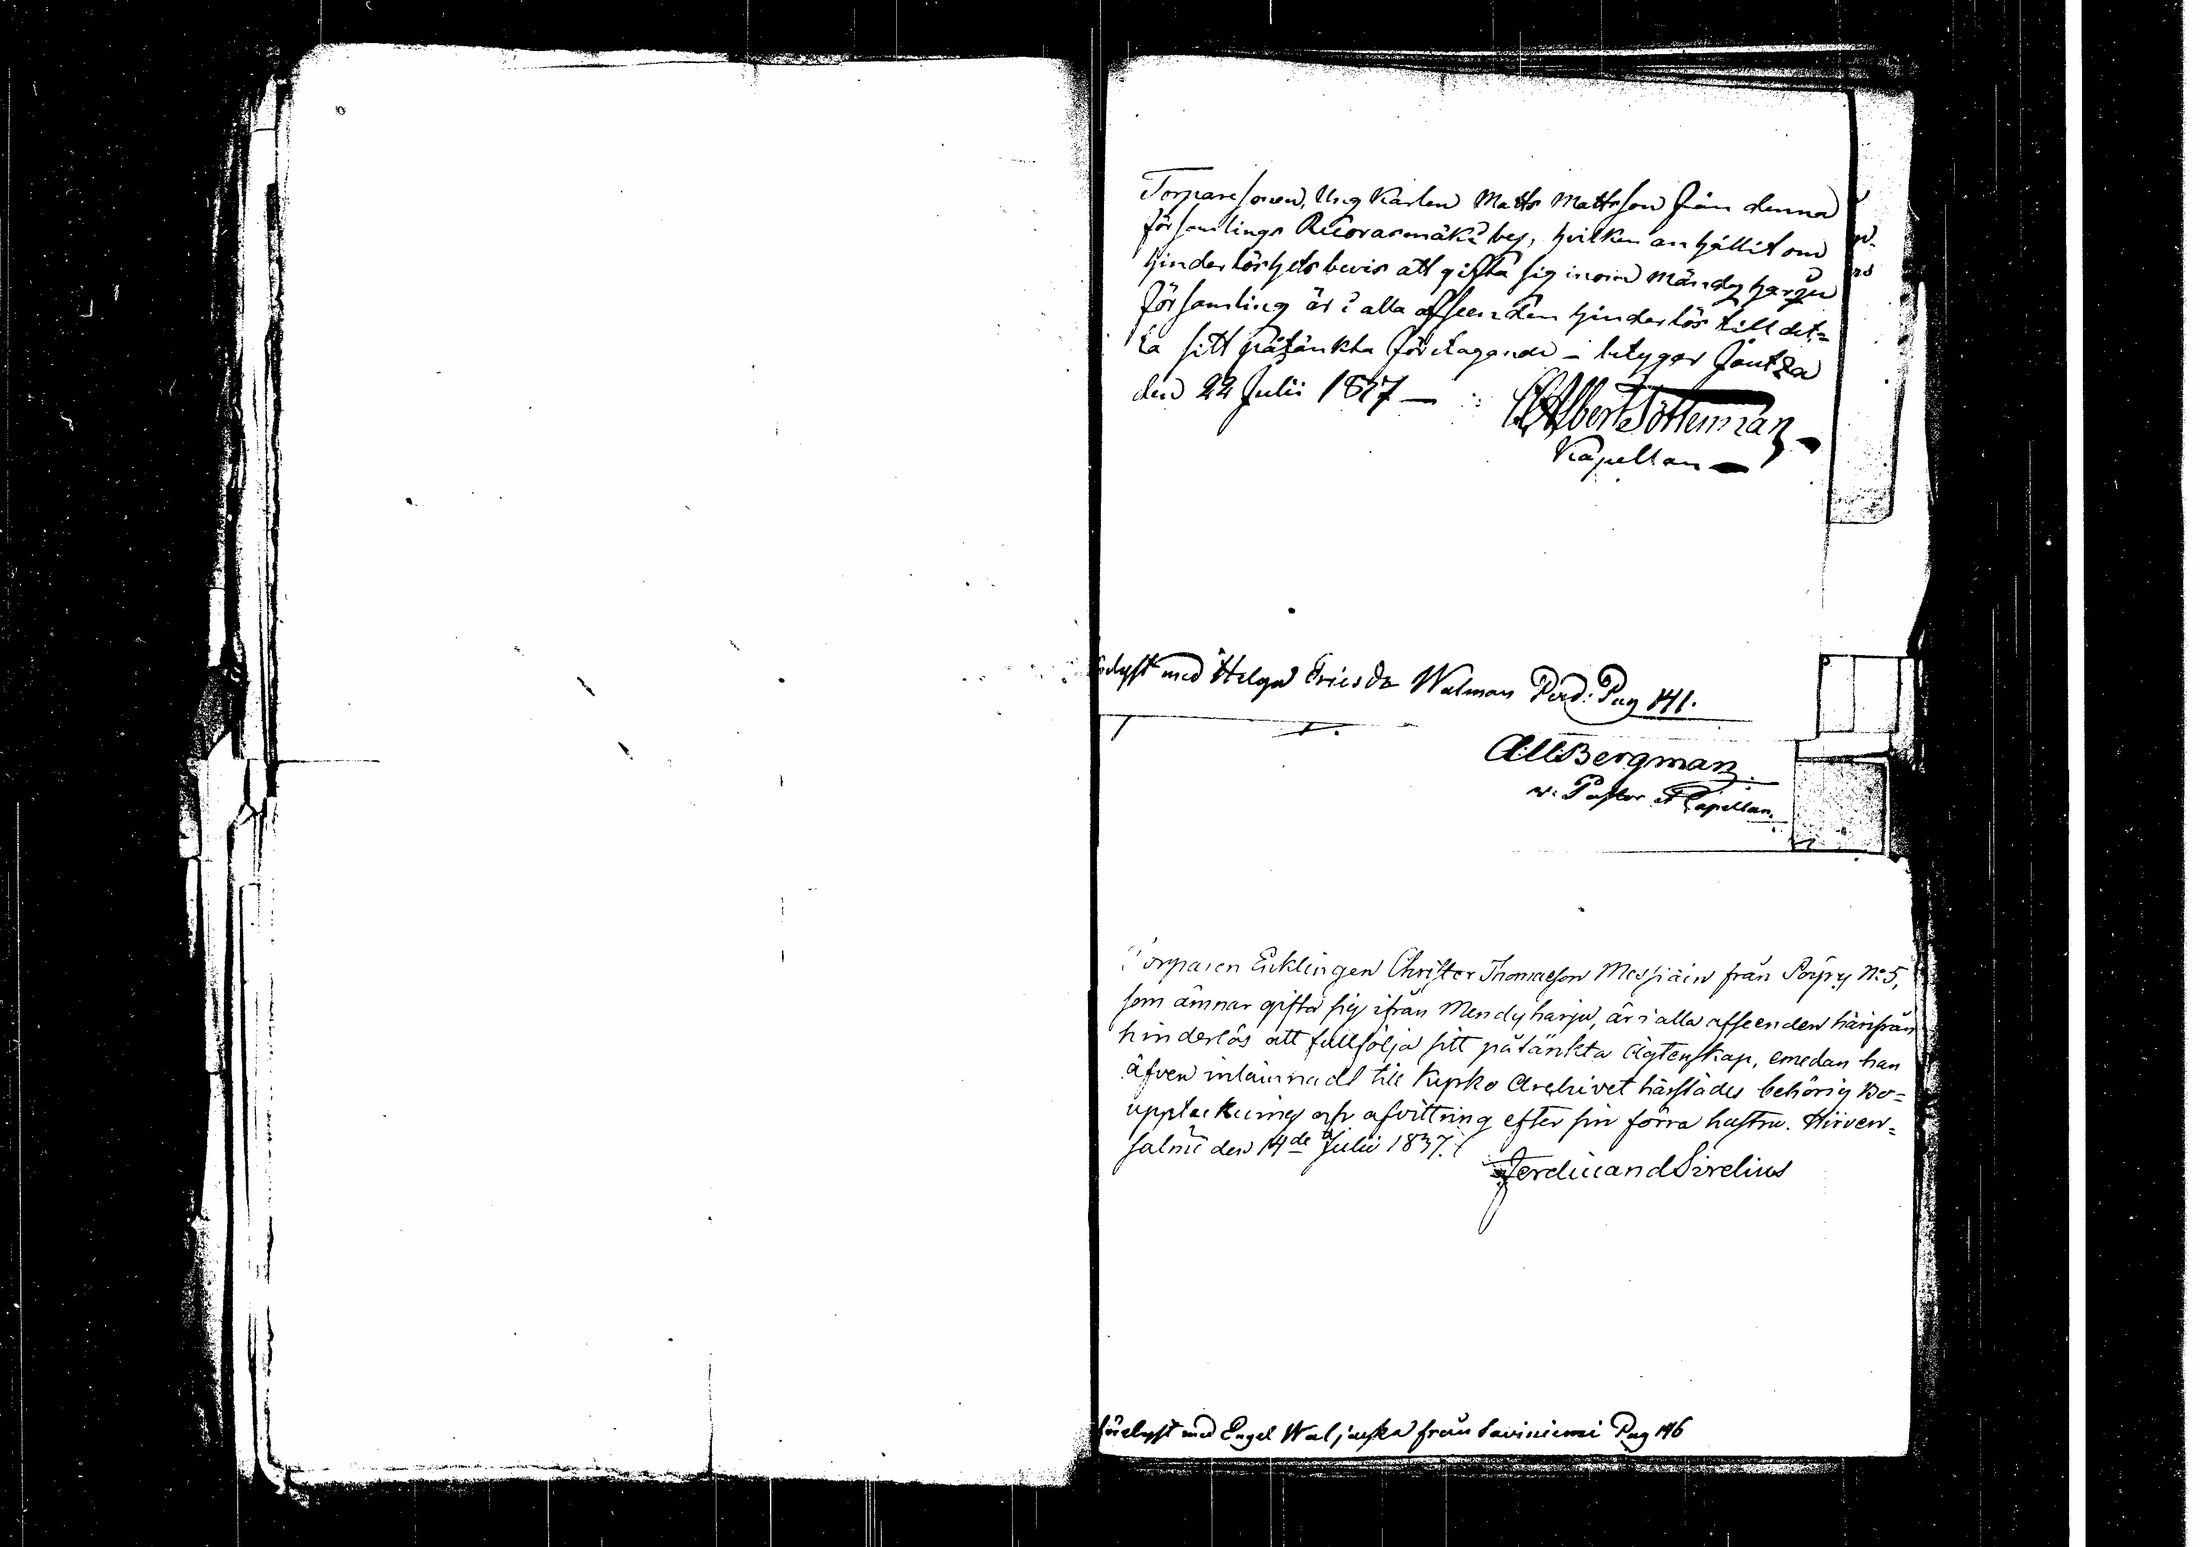 Torparesonen, Ung Karlen Matts Mattsson från denna
församlings Ruorasmäki by, hvilken anhållit om
hinderlöshets bevis att gifta sig inom Mändyharju
församling är i alla afseenden hinderlös till det-
ta sitt påtänkta företagande – betygar Joutza
den 22 Julii 1837 —
Albert Tötterman
Kapellan —
med Helga Ericsdr Walman Pag 141.
Bergman
v. Pastor et Capellan.
Torparen Enklingen Christer Thomasson från Pöyry No 5,
som ämnar gifta sig ifrån Mendyharju, är i alla afseenden härifrån
hinderlös att fullfölja sitt påtänkta Ägtenskap, emedan han
äfven inlämnadt till Kyrko Archivet härstädes behörig Bo=
uppteckning och afvittring efter sin förra hustru. Hirven=
salmi den 14de Julii 1837.
Ferdinand Sirelius
med Engel från Saviniemi Pag 146